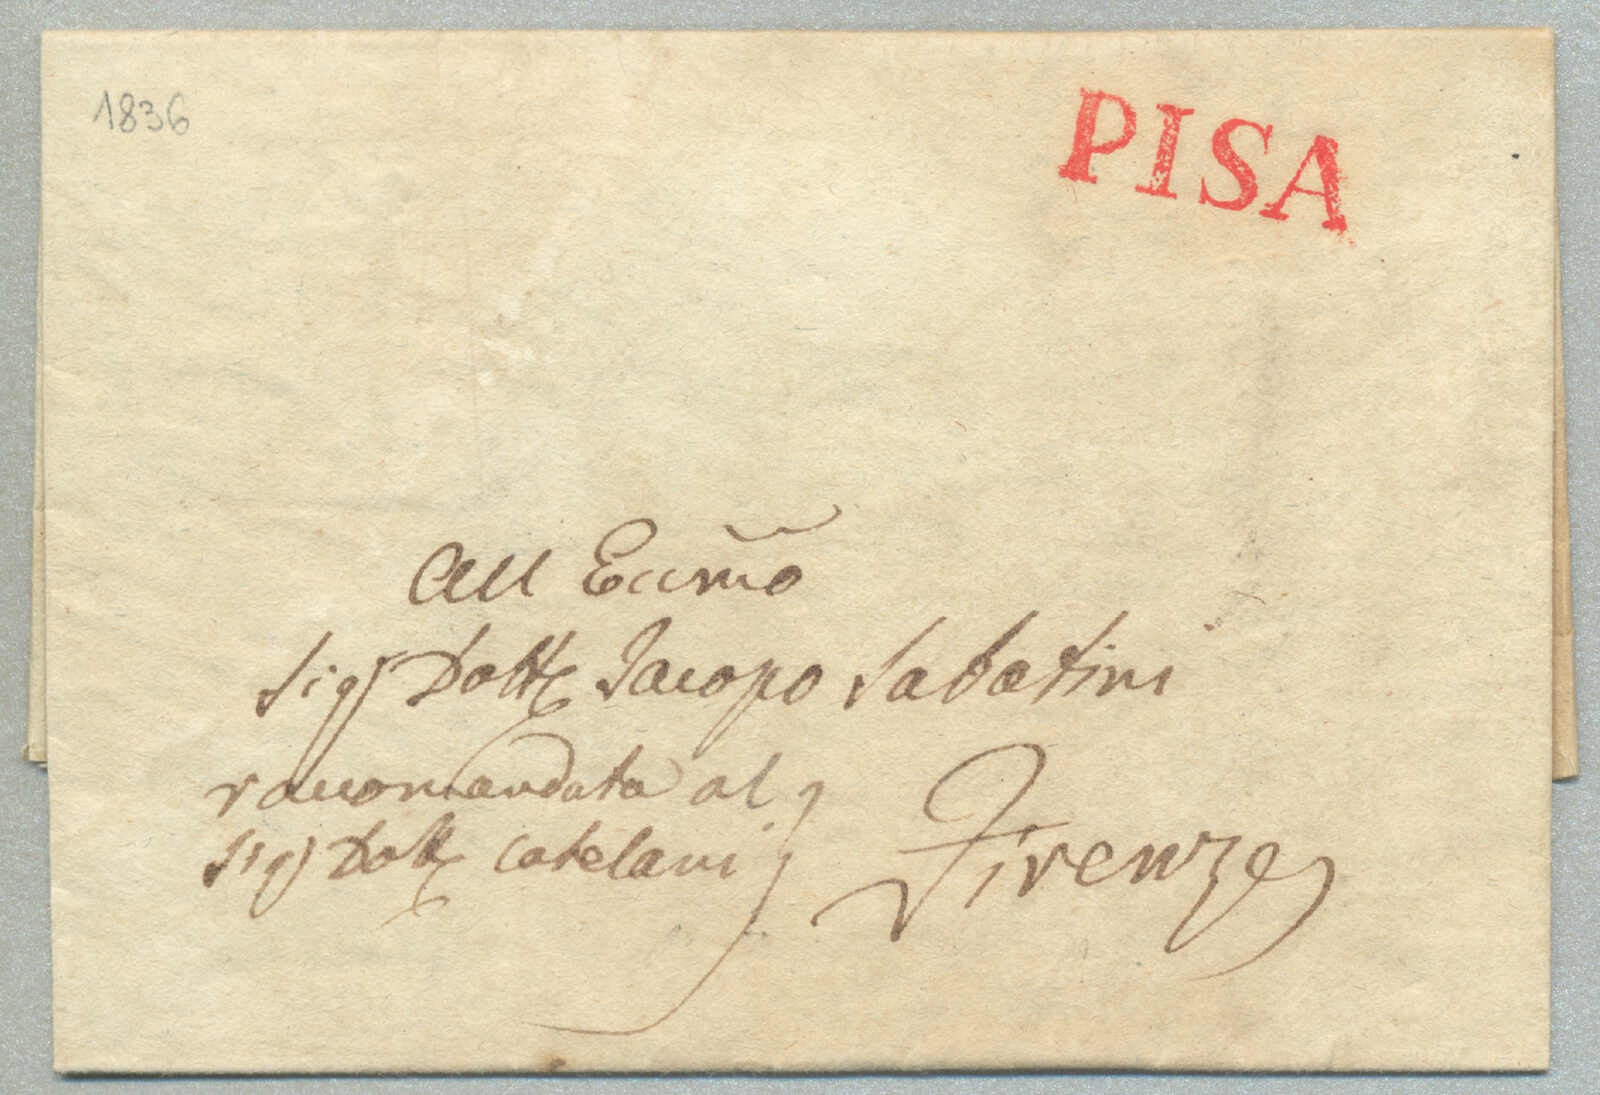 1836
PISA
All Eccmo
Sigr Dotte Jacopo Sabatini
raccomandata al
Sigr Dotte Catelani
Firenze